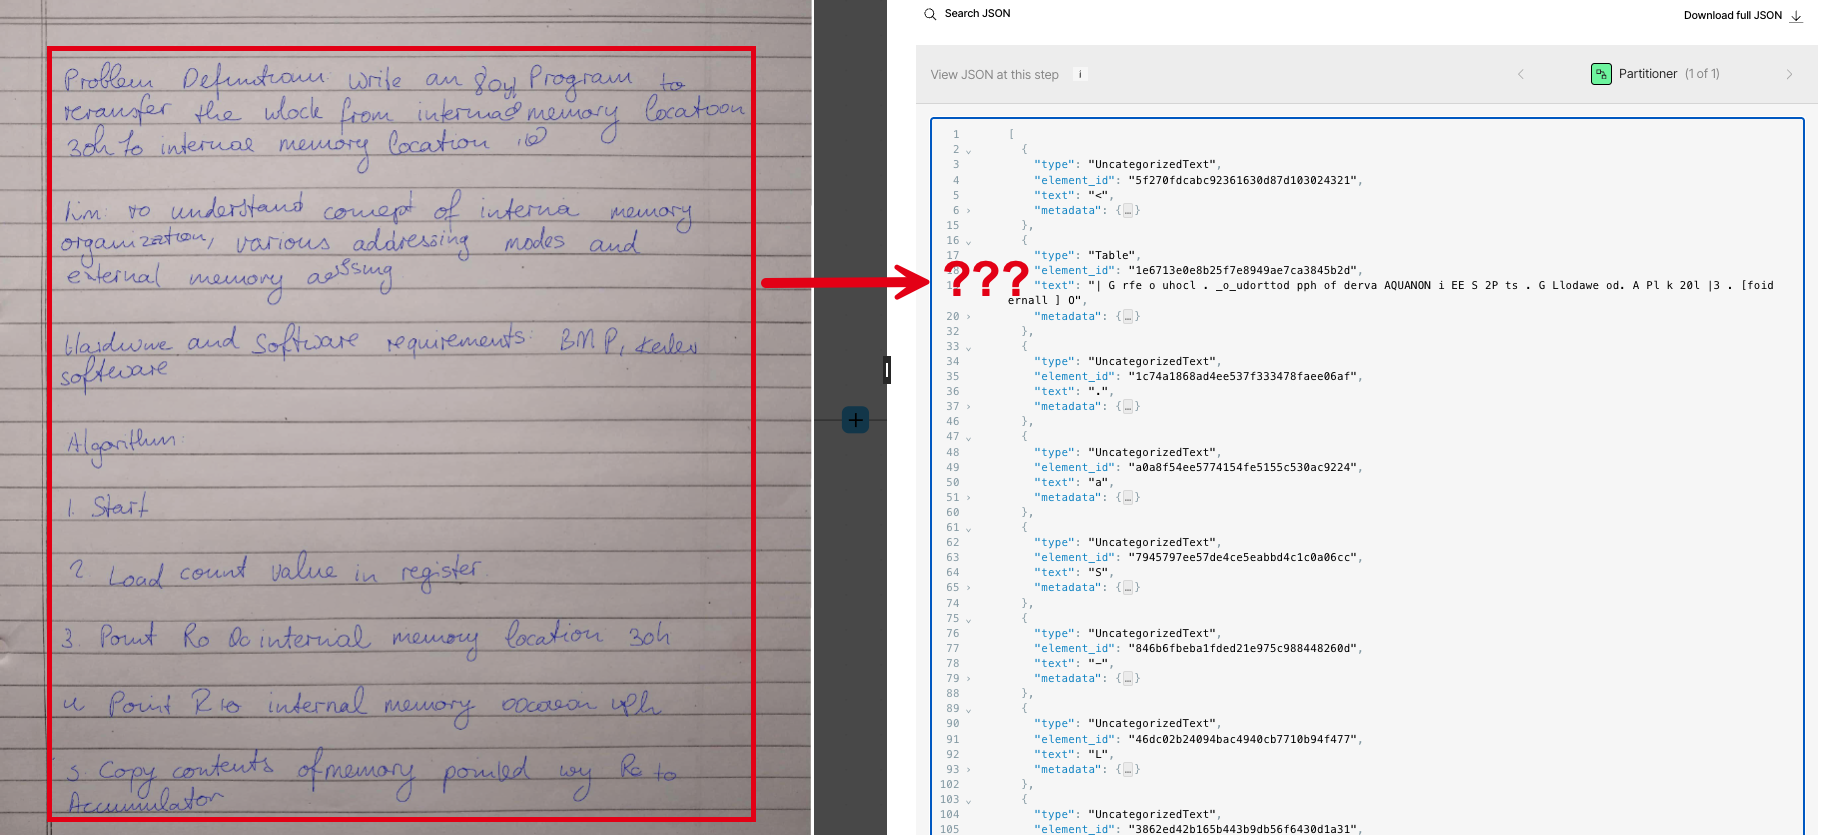 Problem Definition: Write an 8051 Program to
reransfer the block from internal memory location
30h to internal memory location
Aim: to understand concept of interna memory
organization, various addressing modes and
external memory acssing
Hardwrre and Software requirements: BMP, Keilev
software
Algorithm:
1. Start
2 Load count value in register.
3. Point Ro internal memory location 30h
4 Point R internal memory
5. Copy contents of memory pointed by Ro to
Accumulator
???
Search JSON
Download full JSON
View JSON at this step i
Partitioner (1 of 1)
1 [
2 {
3 "type": "UncategorizedText",
4 "element_id": "5f270fdcabc92361630d87d103024321",
5 "text": "<",
6 "metadata": {…}
15 },
16 {
17 "type": "Table",
18 "element_id": "1e6713e0e8b25f7e8949ae7ca3845b2d",
"text": "| G rfe o uhocl . _o_udorttod pph of derva AQUANON i EE S 2P ts . G Llodawe od. A Pl k 20l |3 . [foid
ernall ] O",
20 "metadata": {…}
32 },
33 {
34 "type": "UncategorizedText",
35 "element_id": "1c74a1868ad4ee537f333478faee06af",
36 "text": ".",
37 "metadata": {…}
46 },
47 {
48 "type": "UncategorizedText",
49 "element_id": "a0a8f54ee5774154fe5155c530ac9224",
50 "text": "a",
51 "metadata": {…}
60 },
61 {
62 "type": "UncategorizedText",
63 "element_id": "7945797ee57de4ce5eabbd4c1c0a06cc",
64 "text": "S",
65 "metadata": {…}
74 },
75 {
76 "type": "UncategorizedText",
77 "element_id": "846b6fbeba1fded21e975c988448260d",
78 "text": "–",
79 "metadata": {…}
88 },
89 {
90 "type": "UncategorizedText",
91 "element_id": "46dc02b24094bac4940cb7710b94f477",
92 "text": "L",
93 "metadata": {…}
102 },
103 {
104 "type": "UncategorizedText",
105 "element_id": "3862ed42b165b443b9db56f6430d1a31",